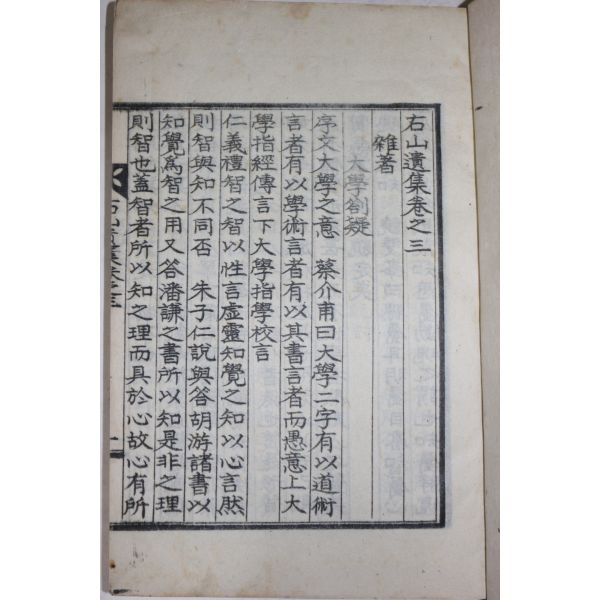 右山遺集卷之三
雜著
大學劄疑
序文大學之意　蔡介甫曰大學二字有以道術
言者有以學術言者有以其書言者而愚意上大
學指經傳言下大學指學校言
仁義禮智之智以性言虛靈知覺之知以心言然
則智與知不同否　朱子仁說與答胡游諸書以
知覺爲智之用又答潘謙之書所以知是非之理
則智也蓋智者所以知之理而具於心故心有所